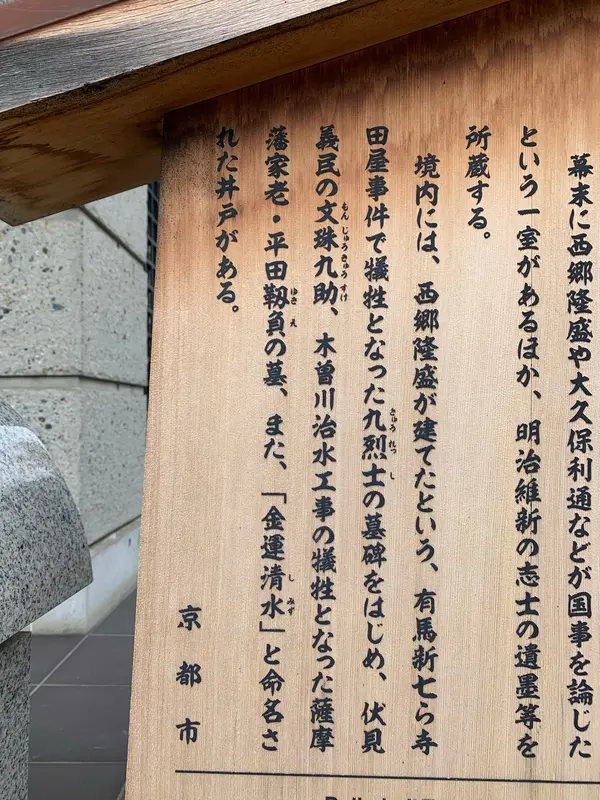 幕末に西郷隆盛や大久保利通などが国事を論じた
という一室があるほか、明治維新の志士の遺墨等を
所蔵する。
境内には、西郷隆盛が建てたという、有馬新七ら寺
田屋事件で犠牲となった九烈士の墓碑をはじめ、伏見
義民の文珠九助、木曽川治水工事の犠牲となった薩摩
藩家老・平田靱負の墓、また、「金運清水」と命名さ
れた井戸がある。
京都市